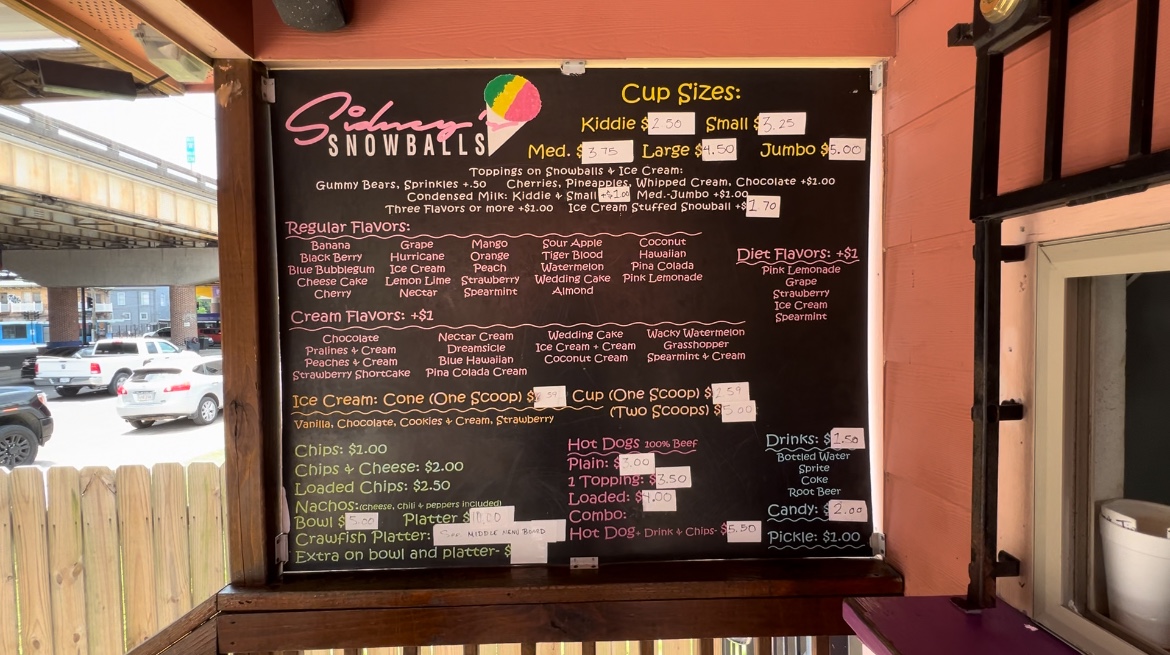 Sidney's
SNOWBALLS
Cup Sizes:
Kiddie $2.50 Small $3.25
Med. $3.75 Large $4.50 Jumbo $5.00
Toppings on Snowballs & Ice Cream:
Gummy Bears, Sprinkles +.50 Cherries, Pineapples, Whipped Cream, Chocolate +$1.00
Condensed Milk: Kiddie & Small +$1.00 Med.-Jumbo +$1.00
Three Flavors or more +$1.00 Ice Cream Stuffed Snowball +$1.70
Regular Flavors:
Banana Grape Mango Sour Apple Coconut
Black Berry Hurricane Orange Tiger Blood Hawaiian
Blue Bubblegum Ice Cream Peach Watermelon Pina Colada
Cheese Cake Lemon Lime Strawberry Wedding Cake Pink Lemonade
Cherry Nectar Spearmint Almond
Diet Flavors: +$1
Pink Lemonade
Grape
Strawberry
Ice Cream
Spearmint
Cream Flavors: +$1
Chocolate Nectar Cream Wedding Cake Wacky Watermelon
Pralines & Cream Dreamsicle Ice Cream + Cream Grasshopper
Peaches & Cream Blue Hawaiian Coconut Cream Spearmint & Cream
Strawberry Shortcake Pina Colada Cream
Ice Cream: Cone (One Scoop) $ Cup (One Scoop) $2.59
(Two Scoops) $5.00
Vanilla, Chocolate, Cookies & Cream, Strawberry
Chips: $1.00
Chips & Cheese: $2.00
Loaded Chips: $2.50
Nachos:(cheese, chili & peppers included)
Bowl $5.00 Platter $10.00
Crawfish Platter: See MIDDLE MENU BOARD
Extra on bowl and platter- $
Hot Dogs 100% Beef
Plain: $3.00
1 Topping: $3.50
Loaded: $4.00
Combo:
Hot Dog+ Drink & Chips- $5.50
Drinks: $1.50
Bottled Water
Sprite
Coke
Root Beer
Candy: $2.00
Pickle: $1.00